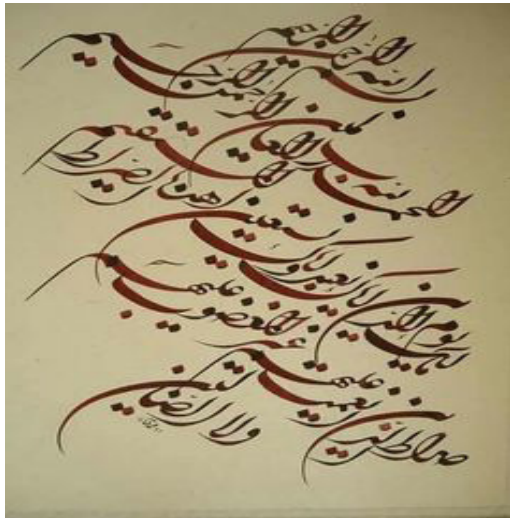 بسم الله الرحمن الرحیم
الحمد لله رب العالمین الرحمن الرحیم
مالک یوم الدین ایاک نعبد و ایاک نستعین
اهدنا الصراط المستقیم
صراط الذین انعمت علیهم
غیر المغضوب علیهم
ولا الضالین